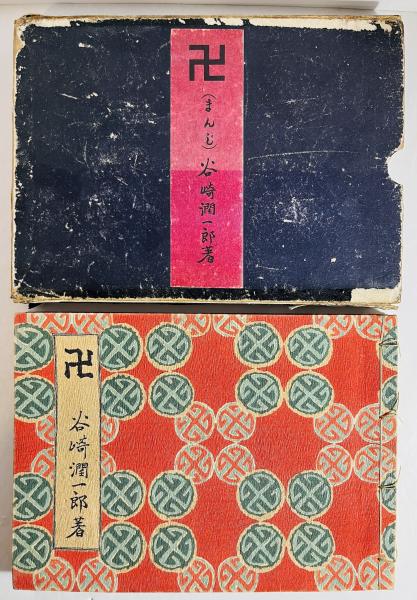 卍
(まんじ)
谷崎潤一郎著
卍
谷崎潤一郎著